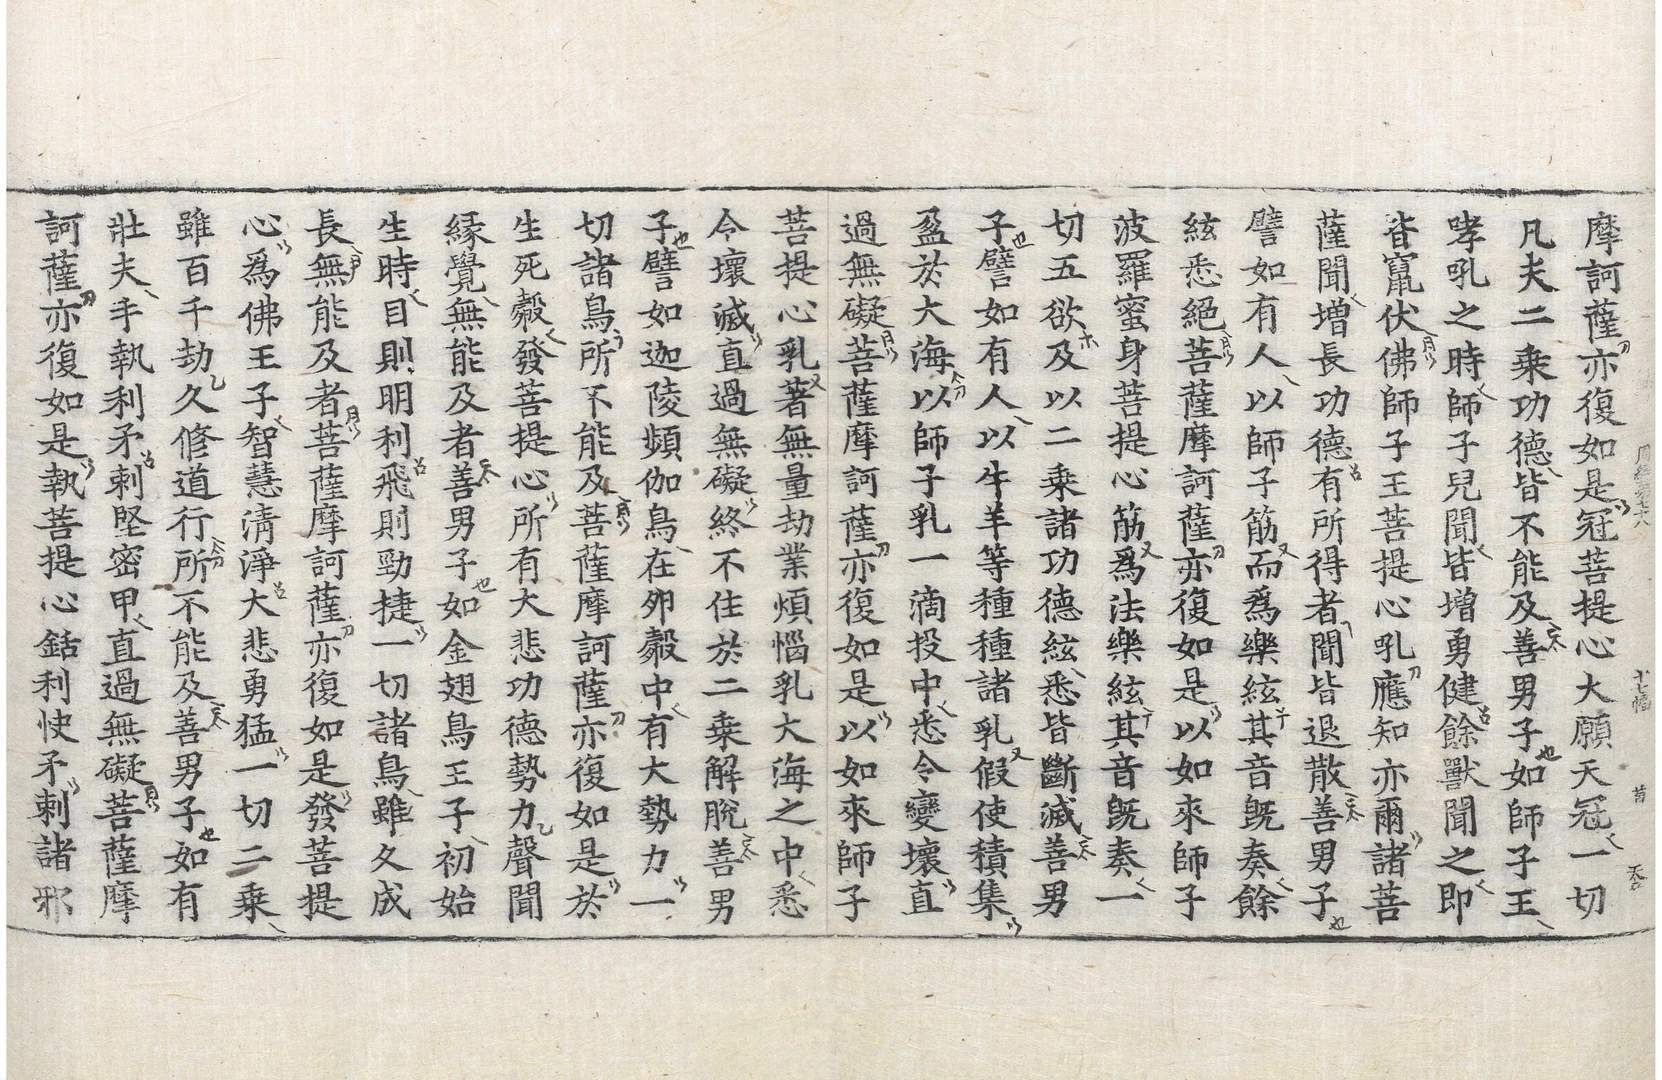 摩訶薩亦復如是冠菩提心大願天冠一切
凡夫二乗功德皆不能及善男子如師子王
哮吼之時師子兒聞皆增勇健餘獸聞之即
皆竄伏佛師子王菩提心吼應知亦爾諸菩
薩聞增長功德有所得者聞皆退散善男子
譬如有人以師子筋而爲樂絃其音旣奏餘
絃悉絕菩薩摩訶薩亦復如是以如來師子
波羅蜜身菩提心筋爲法樂絃其音旣奏一
切五欲及以二乗諸功德絃悉皆斷滅善男
子譬如有人以牛羊等種種諸乳假使積集
盈於大海以師子乳一滴投中悉令變壞直
過無礙菩薩摩訶薩亦復如是以如來師子
菩提心乳著無量劫業煩惱乳大海之中悉
令壞滅直過無礙終不住於二乗解脫善男
子譬如迦陵頻伽鳥在卵㲉中有大勢力一
切諸鳥所不能及菩薩摩訶薩亦復如是於
生死㲉發菩提心所有大悲功德勢力聲聞
縁覺無能及者善男子如金翅鳥王子初始
生時目則明利飛則勁捷一切諸鳥雖久成
長無能及者菩薩摩訶薩亦復如是發菩提
心爲佛王子智慧淸淨大悲勇猛一切二乗
雖百千劫久修道行所不能及善男子如有
壯夫手執利矛刺堅密甲直過無礙菩薩摩
訶薩亦復如是執菩提心銛利快矛刺諸邪